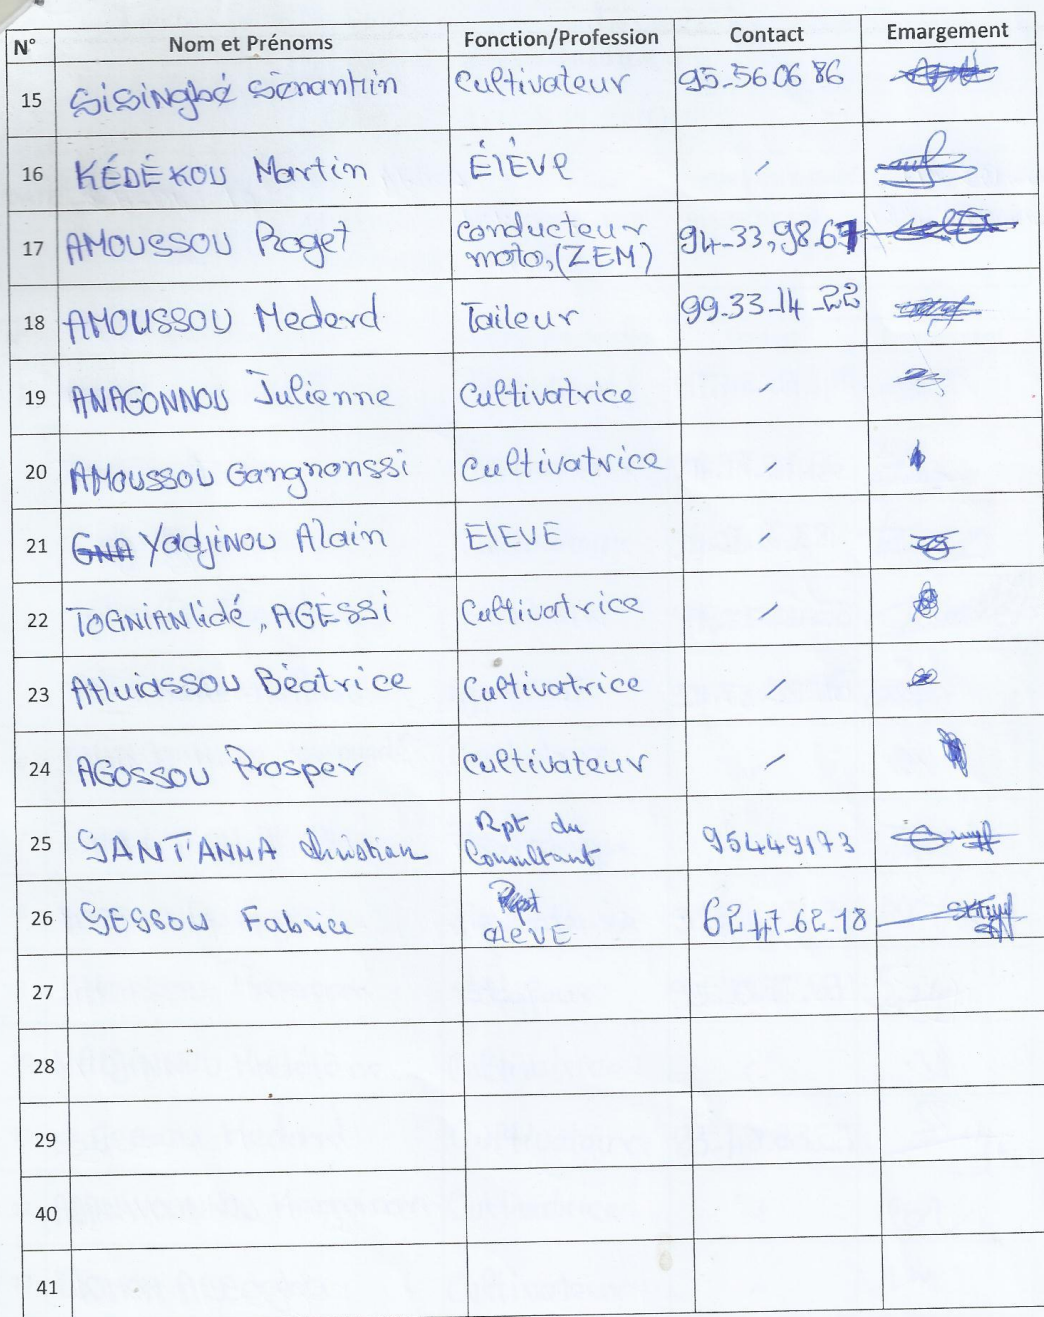 N° Nom et Prénoms Fonction/Profession Contact Emargement
15 SiSiNgbé Sènantin Cultivateur 95-56 06 86
16 KÉDÉKOU Martin ÉlÈVE /
17 AMOUSSOU Roget Conducteur moto,(ZEM) 94-33,98-67
18 AMOUSSOU Mederd Taileur 99-33-14-22
19 ANAGONNOU Julienne Cultivatrice /
20 AMOUSSOU Gangnonssi Cultivatrice /
21 GNA YadjiNOU Alain ElEVE /
22 TOGNiANlidé, AGESSi Cultivatrice /
23 Béatrice Cultivatrice /
24 AGOSSOU Prosper Cultivateur /
25 SANTANNA Christian Rpt du Consultant 95449173
26 SESSOU Fabrice éleVE 62-47-62-18
27
28
29
40
41